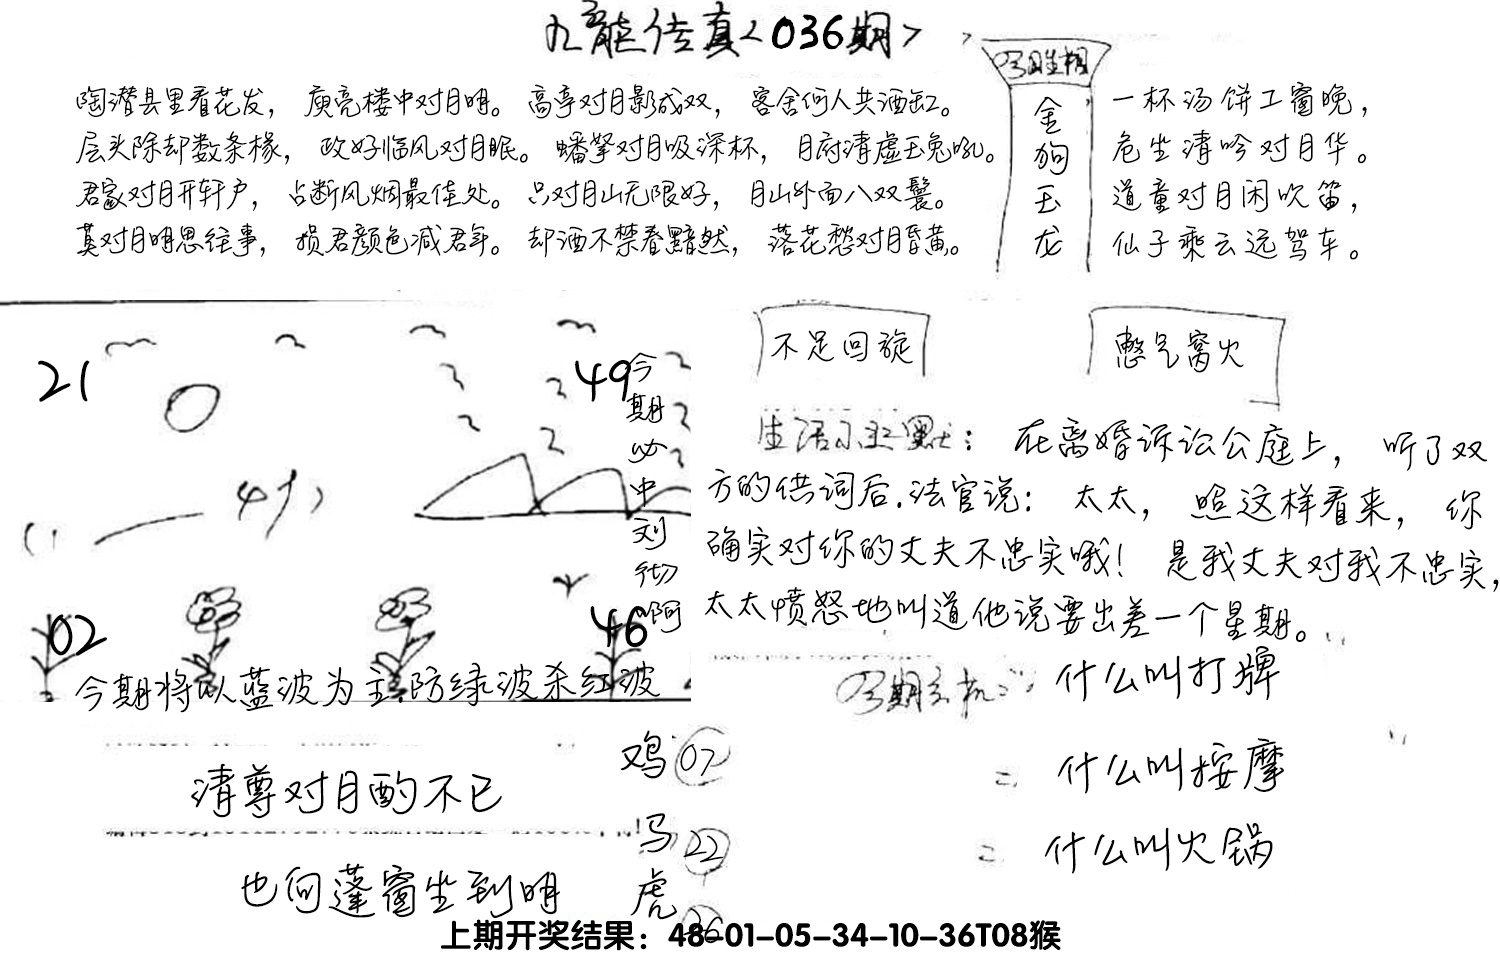 九龙传真<036期>
陶潜县里看花发，庾亮楼中对月明。高亭对月影成双，客舍何人共酒缸。
层头除却数条椽，政好临风对月眠。蟠拏对月吸深杯，月府清虚玉兔吼。
君家对月开轩户，占断风烟最佳处。只对月山无限好，月山外面八双鬟。
莫对月明思往事，损君颜色减君年。却酒不禁春黯然，落花愁对月昏黄。
金狗玉龙
一杯汤饼工窗晚，
危坐清吟对月华。
道童对月闲吹笛，
仙子乘云远驾车。
21
49
02
46
今期必中刘彻啊
今期将以蓝波为主防绿波杀红波
不足回旋
憋气窝火
生活小幽默：在离婚诉讼公庭上，听了双
方的供词后.法官说：太太，照这样看来，你
确实对你的丈夫不忠实哦！是我丈夫对我不忠实，
太太愤怒地叫道他说要出差一个星期。
什么叫打牌
什么叫按摩
什么叫火锅
清尊对月酌不已
也向蓬窗坐到明
鸡07
马22
虎26
上期开奖结果：48-01-05-34-10-36T08猴